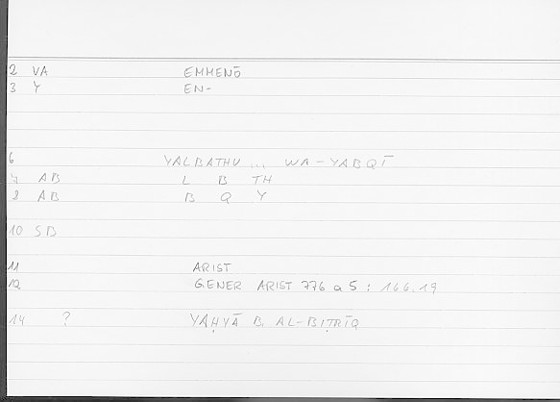 2 VA EMMENŌ
3 Y EN-
6 YALBATHU ... WA-YABQĪ
7 AB L B TH
8 AB B Q Y
10 SB
11 ARIST
12 GENER ARIST 776 a 5 : 166.19
14 ? YAḤYĀ B. AL-BIṬRĪQ